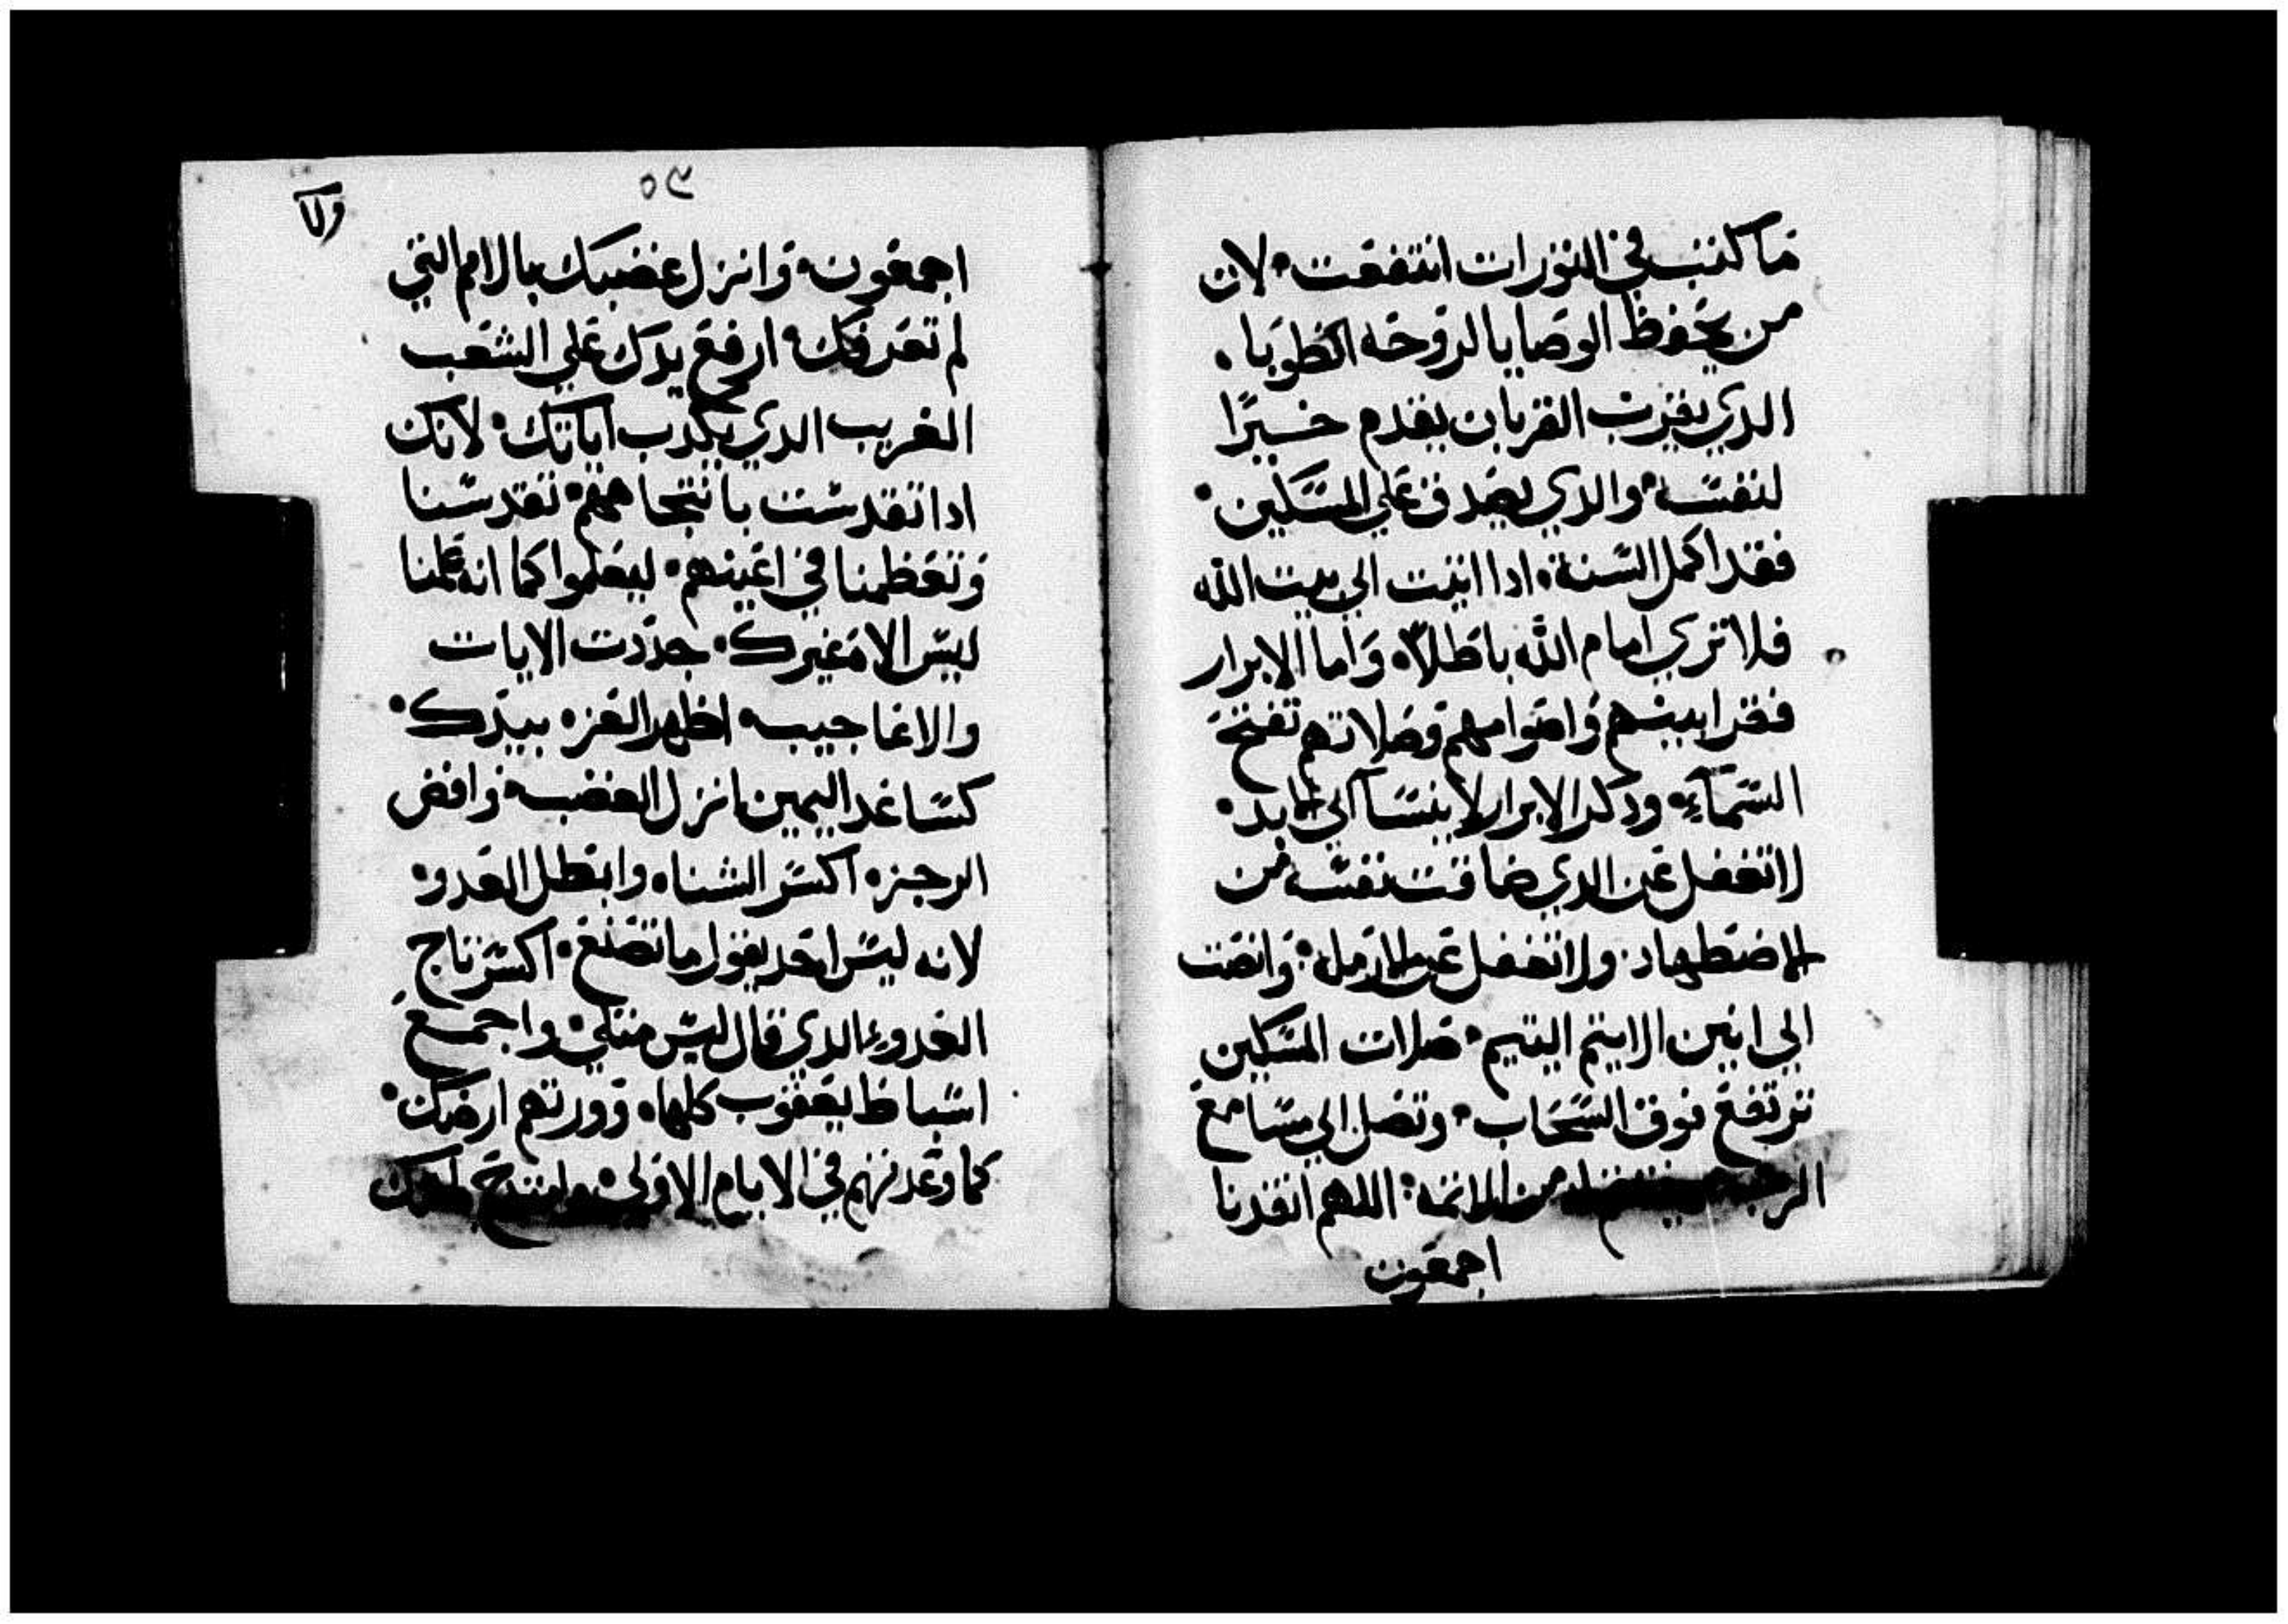 ما كتب في التورات انتفعت لان
من يحفظ الوصايا لروحه الطوبا
الدي يقرب القربان يقدم خسيرًا
لنفسه والدي يصدق علي المسكين
فقد اكمل السنة ادا اتيت الي بيت الله
فلا تري امام الله باطلاً واما الابرار
فقرابينهم واصوامهم وصلاتهم تفتح
السمآء ودكر الابرار لا ينسا الي الابد
لا تغفل عن الدي ضاقت نفسه من
الاضطهاد ولا تغفل عن الارمله وانصت
الي انين الايتم اليتيم صلات المسكين
ترتفع فوق السحاب وتصل الي مسامع
الرب من الاتمه اللهم انقدنا
اجمعون
٥٩
ولا
اجمعون وانزل غضبك بالامم التي
لم تعرفك ارفع يدك علي الشعب
الغريب الدي يكدب اياتك لانك
ادا تقدست بانتجاههم تقدسنا
وتعظمنا في اعينهم ليعلموا كما انه علمنا
ليس الاه غيرك جددت الايات
والاعاجيب اظهر العزه بيدك
كساعد اليمين انزل الغضب وافض
الرجز اكسر الشناه وابطل العدو
لانه ليس احد يقول ما تصنع اكسر تاج
العدو الدي قال ليس متلي واجمع
اسباط يعقوب كلها وورتهم ارضك
كما وعدتهم في الايام الاولي